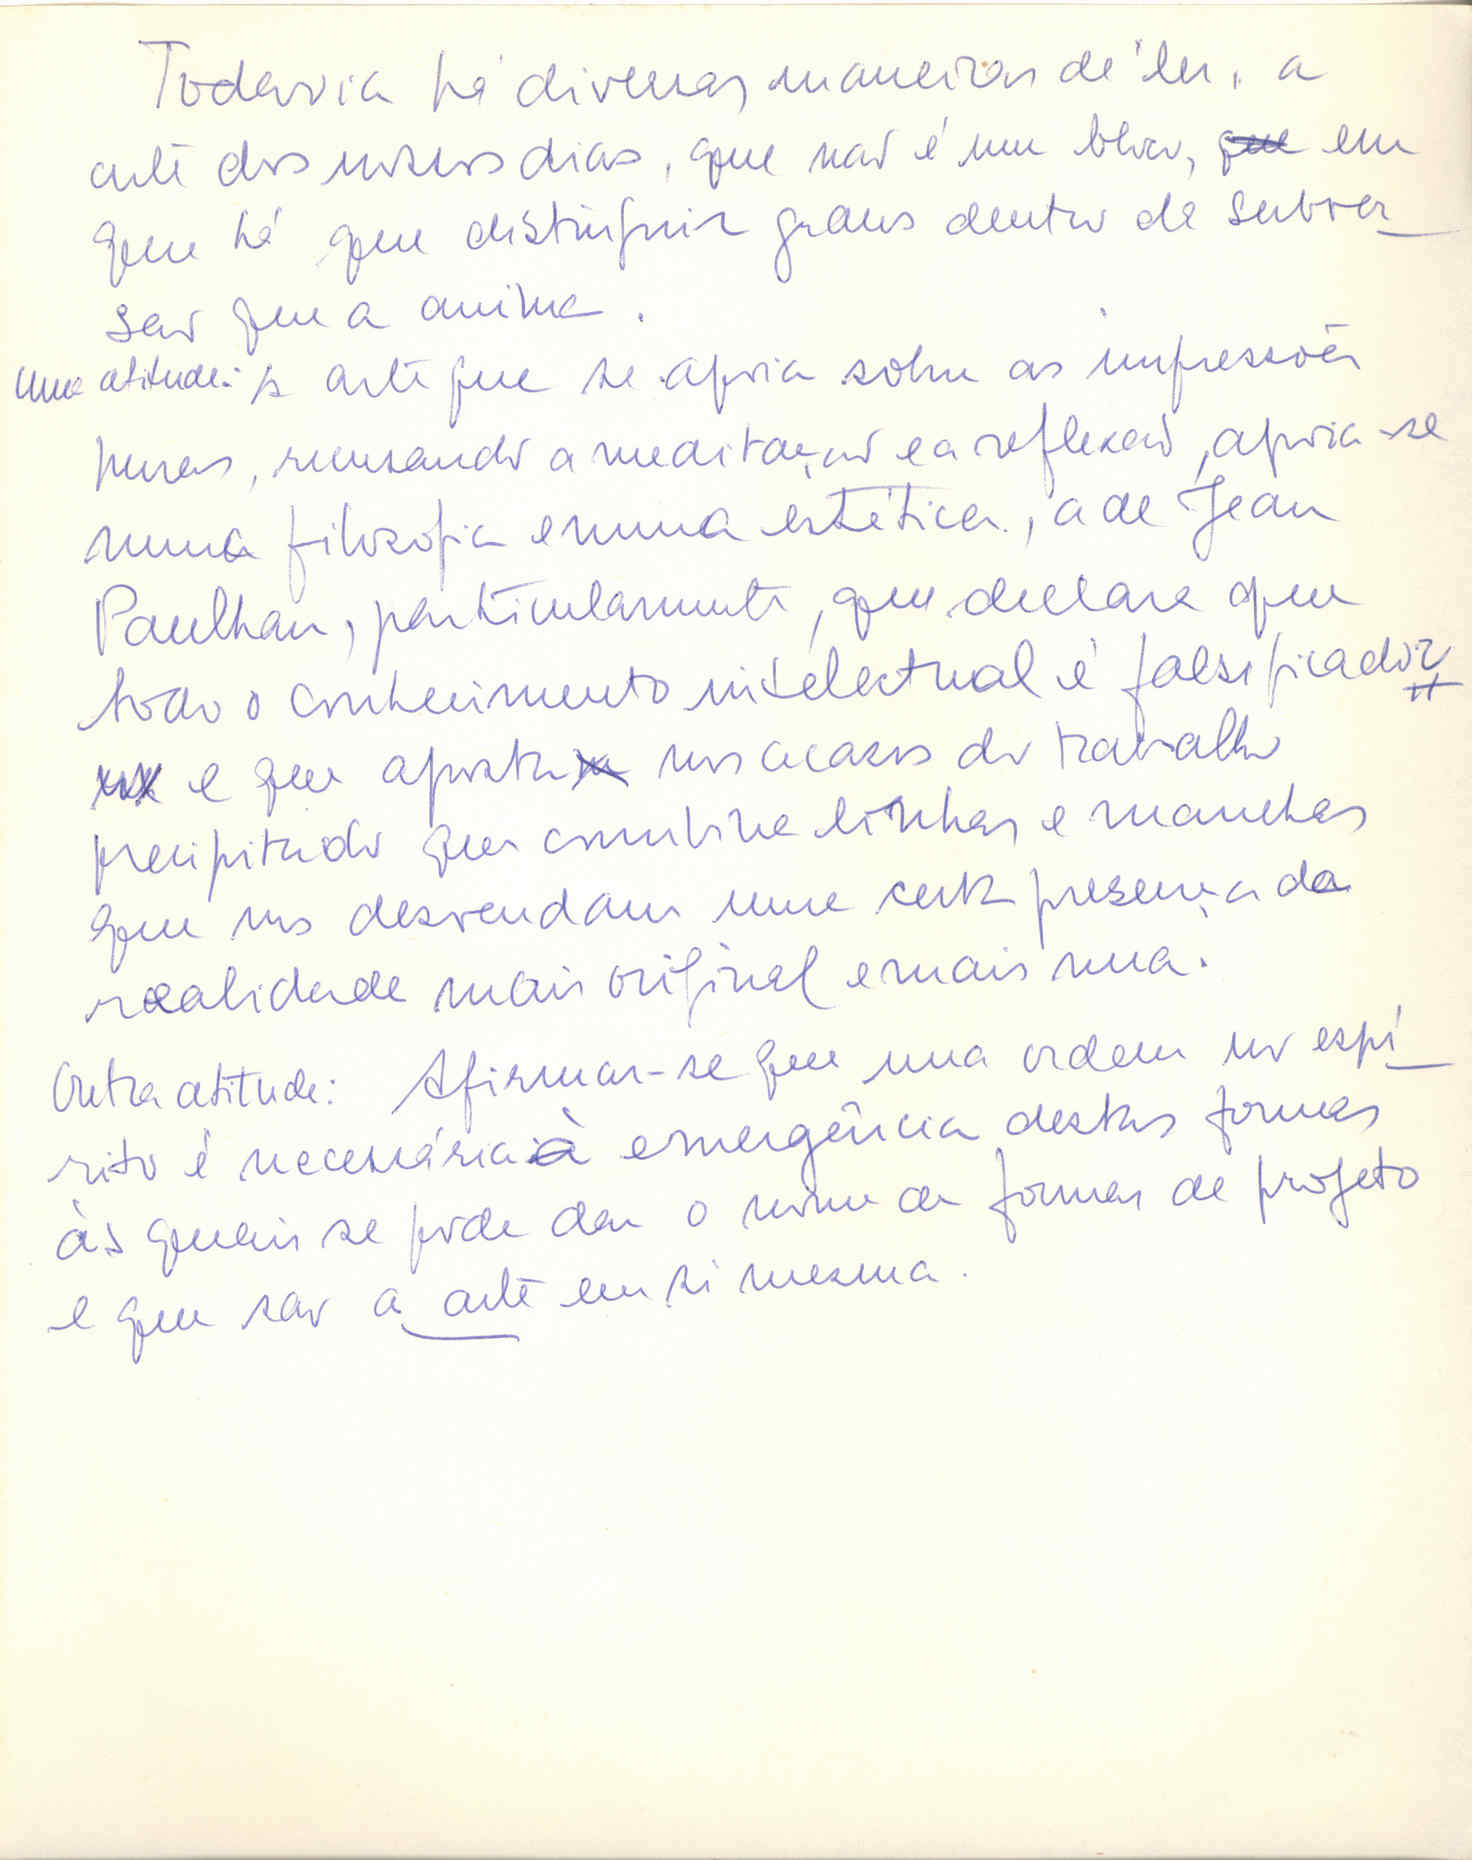 Todavia há diversas maneiras de "ler" a
arte dos nossos dias, que não é um bloco, que em
que há que distinguir graus dentro de subver_
são que a anima.
Uma atitude: A arte que se apoia sobre as impressões
puras, recusando a meditação e a reflexão, apoia-se
numa filosofia e numa estética, a de Jean
Paulhan, particularmente, que declara que
todo o conhecimento intelectual é falsificador
e que aposta nos acasos do trabalho
precipitado que combina linhas e manchas
que nos desvendam uma certa presença da
realidade mais original e mais nua.
Outra atitude: Afirmar-se que uma ordem no espí_
rito é necessária à emergência destas formas
às quais se pode dar o nome de formas de projeto
e que são a arte em si mesma.